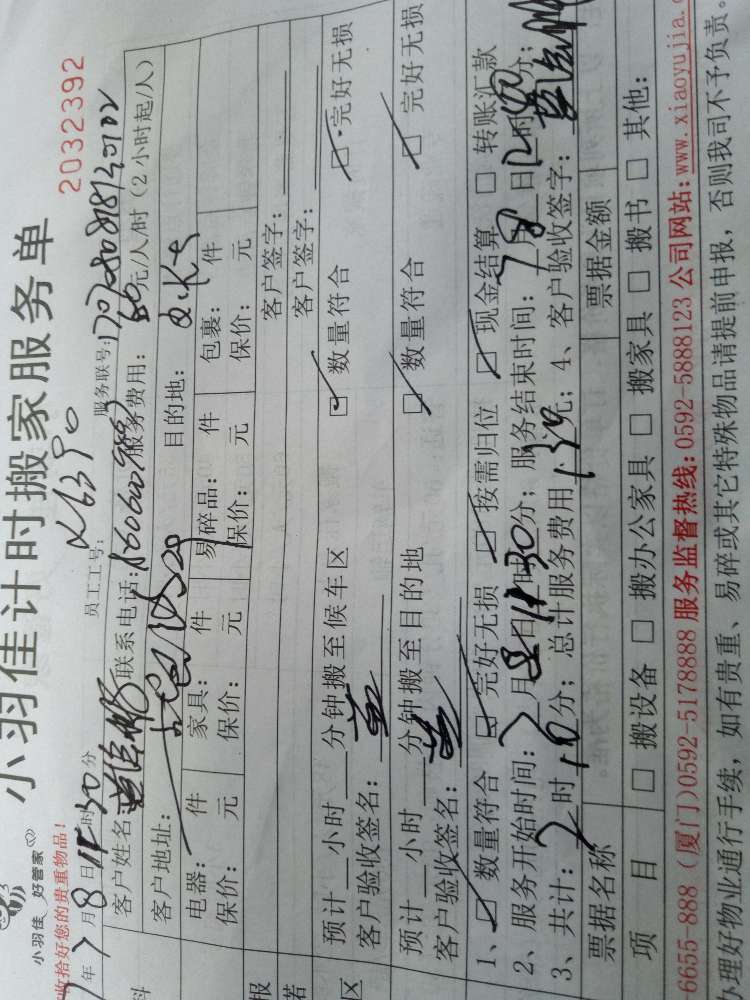 小羽佳计时搬家服务单
2032392
小羽佳 好管家
收拾好您的贵重物品!
年7月8日11时30分 员工工号: 服务联号:
客户姓名: 联系电话: 服务费用: 60元/人/时(2小时起/人)
客户地址: 目的地:
电器: 件 家具: 件 易碎品: 件 包裹: 件
保价: 元 保价: 元 保价: 元 保价: 元
客户签字:
客户签字:
预计 小时 分钟搬至候车区 数量符合 完好无损
客户验收签名:
预计 小时 分钟搬至目的地 数量符合 完好无损
客户验收签名:
1、数量符合 完好无损 按需归位 现金结算 转账汇款
2、服务开始时间:7月8日11时30分; 服务结束时间:7月8日 时 分;
3、共计: 2时10分; 总计服务费用 元; 4、客户验收签字:
票据名称 票据金额
项 目 搬设备 搬办公家具 搬家具 搬书 其他:
6655-888 (厦门)0592-5178888 服务监督热线:0592-5888123 公司网站:www.xiaoyujia.
办理好物业通行手续,如有贵重、易碎或其它特殊物品请提前申报,否则我司不予负责。